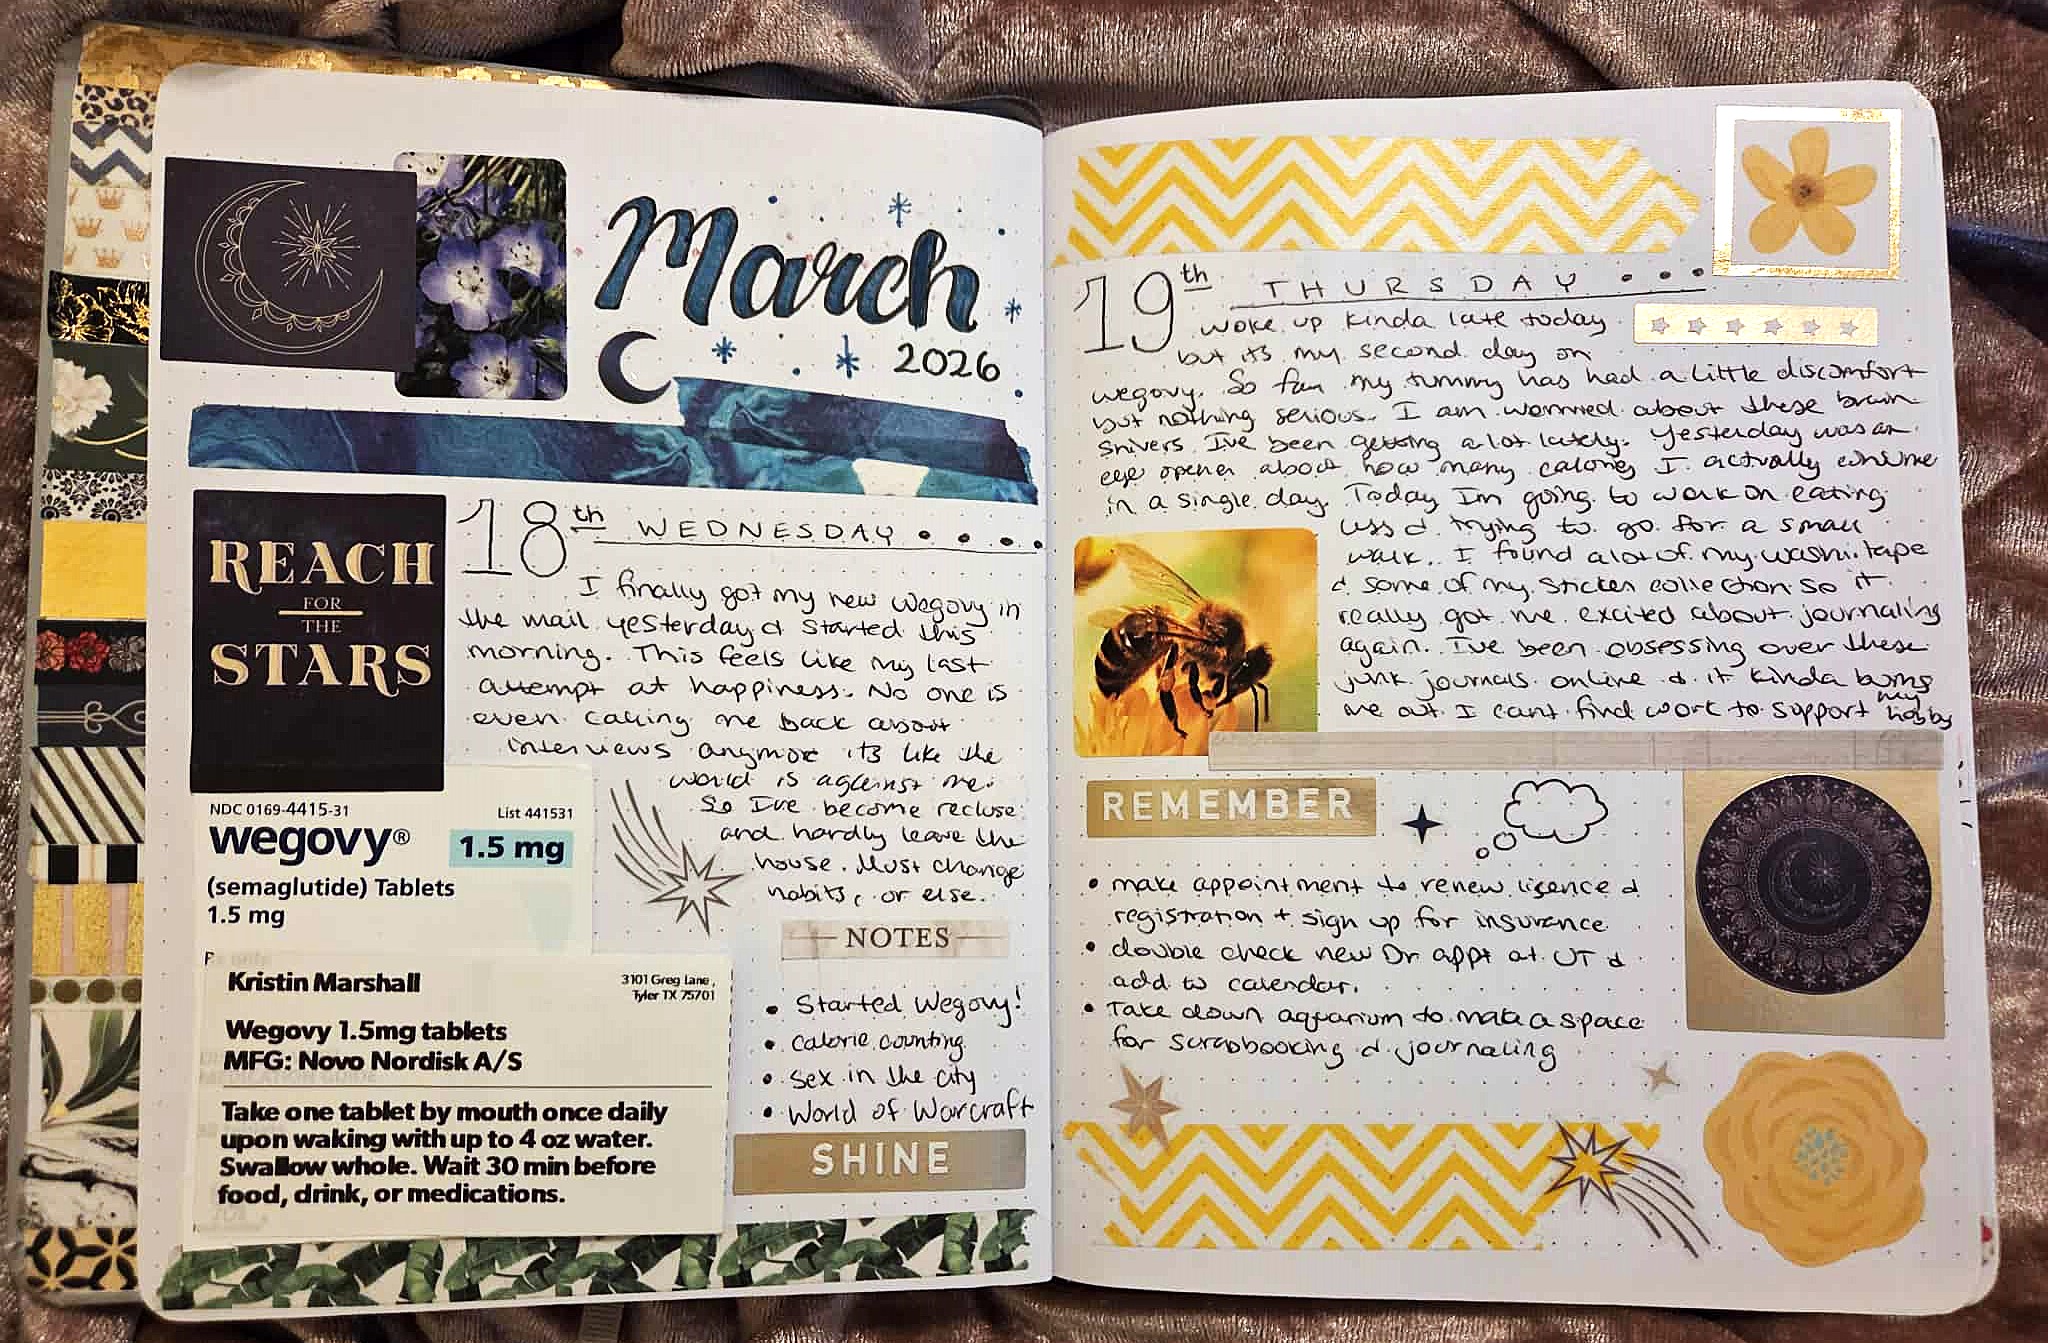 March
2026
REACH
FOR
THE
STARS
18th WEDNESDAY....
I finally got my new Wegovy in
the mail yesterday & started this
morning. This feels like my last
attempt at happiness. No one is
even calling me back about
interviews anymore its like the
world is agienst me.
So I've become recluse
and hardly leave the
house. Must change
habits, or else.
NDC 0169-4415-31
List 441531
wegovy®
1.5 mg
(semaglutide) Tablets
1.5 mg
Kristin Marshall
3101 Greg Lane,
Tyler TX 75701
Wegovy 1.5mg tablets
MFG: Novo Nordisk A/S
Take one tablet by mouth once daily
upon waking with up to 4 oz water.
Swallow whole. Wait 30 min before
food, drink, or medications.
NOTES
• Started Wegovy!
• calorie counting
• sex in the city
• World of Warcraft
SHINE
19th THURSDAY...
woke up kinda late today
but its my second day on
wegovy. So far my tummy has had a little discomfort
but nothing serious. I am worried about these brain
shivers I've been getting a lot lately. Yesterday was an
eye opener about how many calories I actually
in a single day. Today Im going to work on eating
less & trying to go for a small
walk. I found a lot of my washi tape
& some of my sticker collection so it
really got me excited about journaling
again. I've been obsessing over these
junk journals online & it kinda bums
me out I cant find work to support my hobby
REMEMBER
• make appointment to renew lisence &
registration + sign up for insurance
• double check new Dr appt at UT &
add to calendar.
• Take down aquarium to make a space
for scrapbooking & journaling